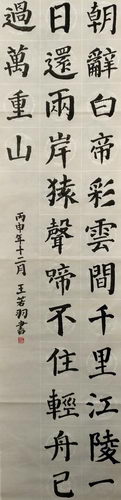 朝辭白帝彩雲間千里江陵一
日還兩岸猿聲啼不住輕舟已
過萬重山
丙申年十二月王若羽書